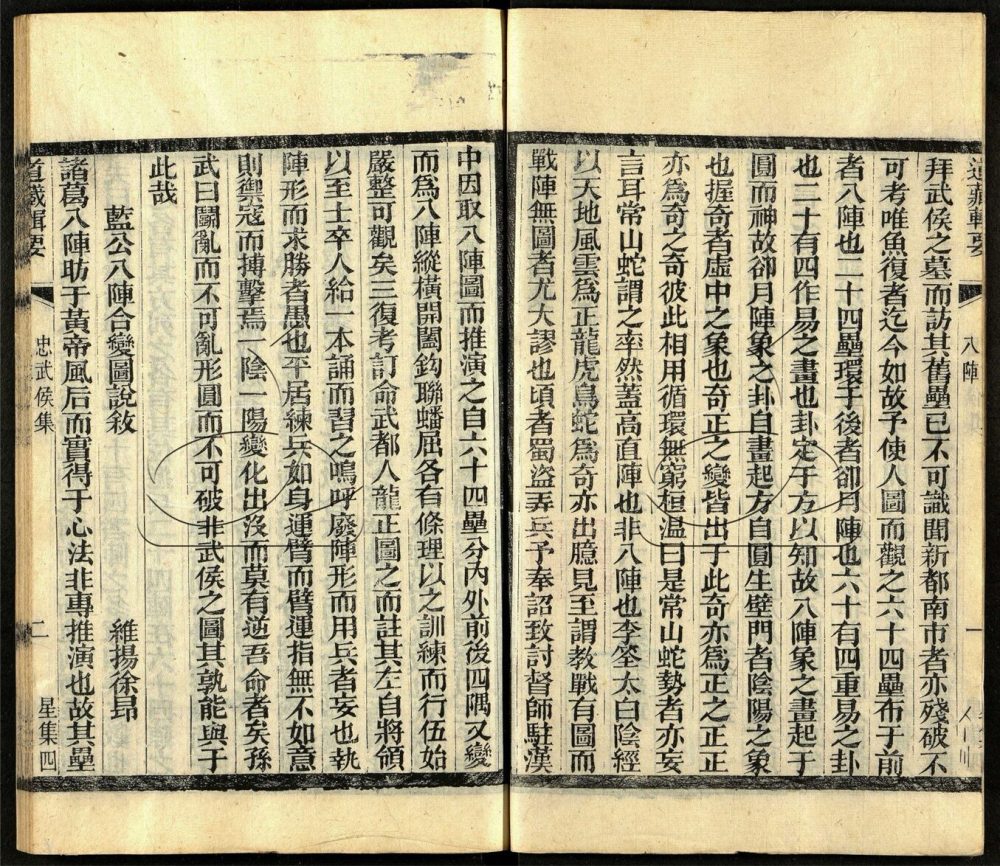 道藏輯要
八陣
一
拜武侯之墓而訪其舊壘已不可識聞新都南市者亦殘破不
可考唯魚復者迄今如故予使人圖而觀之六十四壘布于前
者八陣也二十四壘環于後者卻月陣也六十有四重易之卦
也二十有四作易之畫也卦定于方以知故八陣象之畫起于
圓而神故卻月陣象之卦自畫起方自圓生壁門者陰陽之象
也握奇者虛中之象也奇正之變皆出于此奇亦為正之正正
亦為奇之奇彼此相用循環無窮桓溫曰是常山蛇勢者亦妄
言耳常山蛇謂之率然蓋高直陣也非八陣也李筌太白陰經
以天地風雲為正龍虎鳥蛇為奇亦出臆見至謂教戰有圖而
戰陣無圖者尤大謬也頃者蜀盜弄兵予奉詔致討督師駐漢
中因取八陣圖而推演之自六十四壘分內外前後四隅又變
而為八陣縱橫開闔鈎聯蟠屈各有條理以之訓練而行伍始
嚴整可觀矣三復考訂命武都人龍正圖之而註其左自將領
以至士卒人給一本誦而習之嗚呼廢陣形而用兵者妄也執
陣形而求勝者愚也平居練兵如身運臂而臂運指無不如意
則禦寇而搏擊焉一陰一陽變化出沒而莫有逆吾命者矣孫
武曰鬭亂而不可亂形圓而不可破非武侯之圖其孰能與于
此哉
藍公八陣合變圖說敘
維揚徐昂
諸葛八陣昉于黃帝風后而實得于心法非專推演也故其壘
道藏輯要
忠武侯集
二
星集四